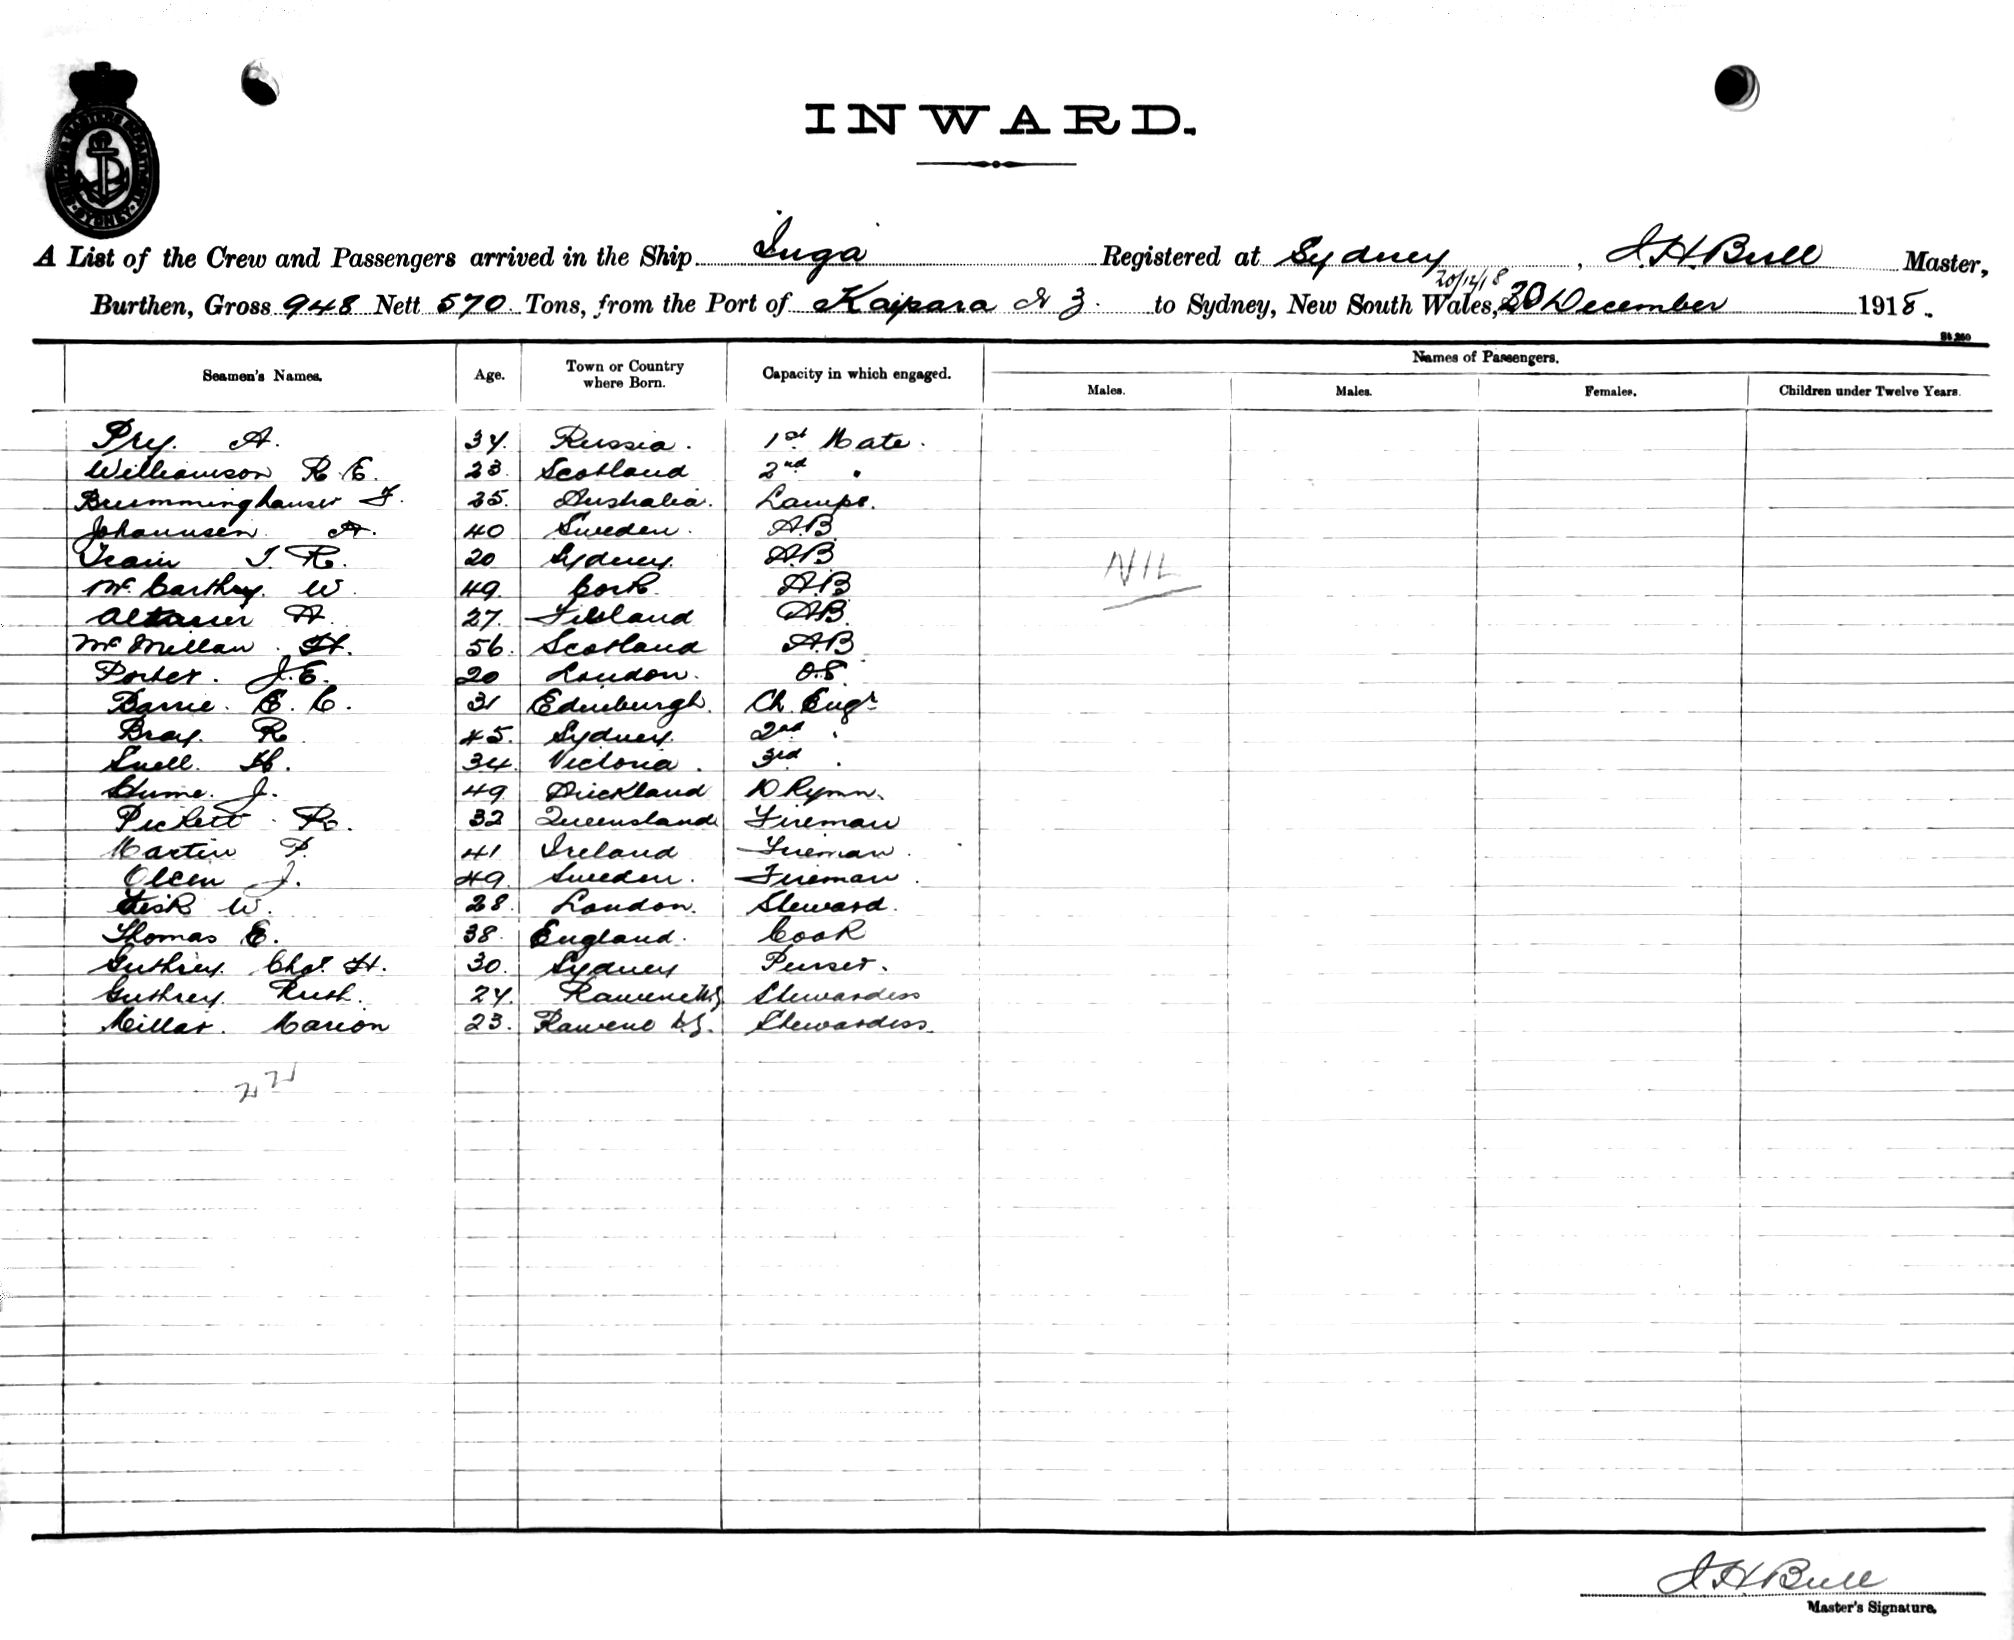 INWARD.
A List of the Crew and Passengers arrived in the Ship Inga Registered at Sydney, J. H. Bull Master,
20/12/18
Burthen, Gross 948 Nett 570 Tons, from the Port of Kaipara N Z. to Sydney, New South Wales, 20 December 1918.
Seamen's Names. Age. Town or Country where Born. Capacity in which engaged. Names of Passengers.
Males. Males. Females. Children under Twelve Years.
Pry. A. 34. Russia. 1st Mate.
Williamson R. E. 23. Scotland 2nd "
Brumminghauser F. 25. Australia. Lamps.
Johannsen A. 40 Sweden. A.B.
Train T. R. 20 Sydney. A.B.
McCarthy. W. 49. Cork. A.B
A. 27. A.B.
McMillan. H. 56. Scotland A.B
Porter. J. E. 20 London. O.S.
Barrie. E. C. 31 Edinburgh. Ch. Engr
Bray. R. 45. Sydney. 2nd "
Snell. H. 34. Victoria. 3rd "
Hume. J. 49 Auckland D Kymn.
Pickett. R. 32 Queensland Fireman
Martin P. 41 Ireland Fireman.
Olsen J. 49. Sweden. Fireman.
Fisk W. 28. London. Steward.
Thomas E. 38. England. Cook
Guthrey. Chas. H. 30. Sydney Purser.
Guthrey. Ruth. 24. Rawene N.Z Stewardess
Millar. Marion 23. Rawene N.Z. Stewardess.
NIL
J. H. Bull
Master's Signature.